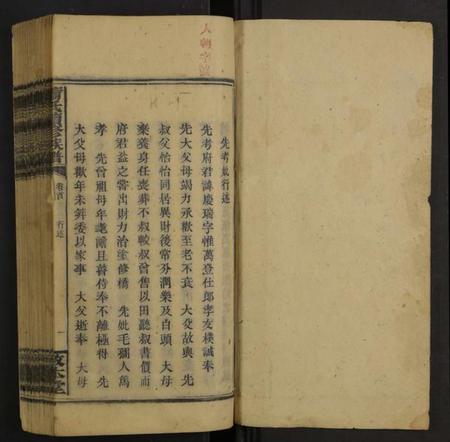 先考妣行述
先考府君諱慶瑞字惟萬登仕郎孝友樸誠奉
先大父母竭力承歡至老不衰 大父故與 先
叔父怡怡同居異財後常分潤樂及白頭 大母
棄養身任喪葬不叔較叔曾售以田聽叔書價而
府君益之嘗出財力治塗修橋 先妣毛孺人為
孝 先曾祖母年耄諭且暮侍奉不離極得 先
大父母歡年未笄委以家事 大父逝奉 大母
續修族譜
卷首
行述
一
敦本堂